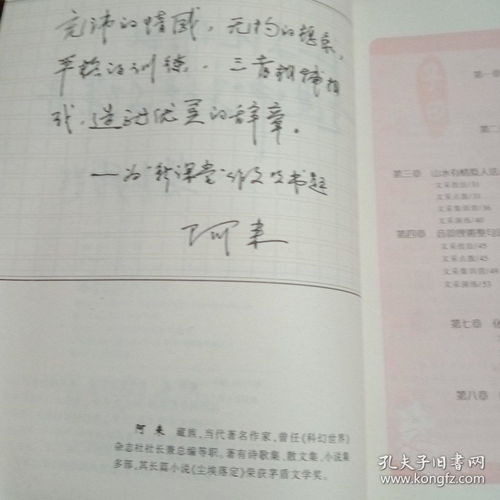 充沛的情感，无拘的想象，
严格的训练，三者相辅相
成，造就优美的辞章。
——为“新课堂”作文书题
阿来
阿 来 藏族，当代著名作家，曾任《科幻世界》
杂志社社长兼总编等职。著有诗歌集、散文集、小说集
多部，其长篇小说《尘埃落定》荣获茅盾文学奖。
第一章
第二
第三章 山水有情
文采技法/31
文采点放/33
文采集训营/36
文采演练/40
第四章
文采技法/43
文采点放/45
文采集训营/49
文采演练/53
第七章
第八章
孔夫子旧书网